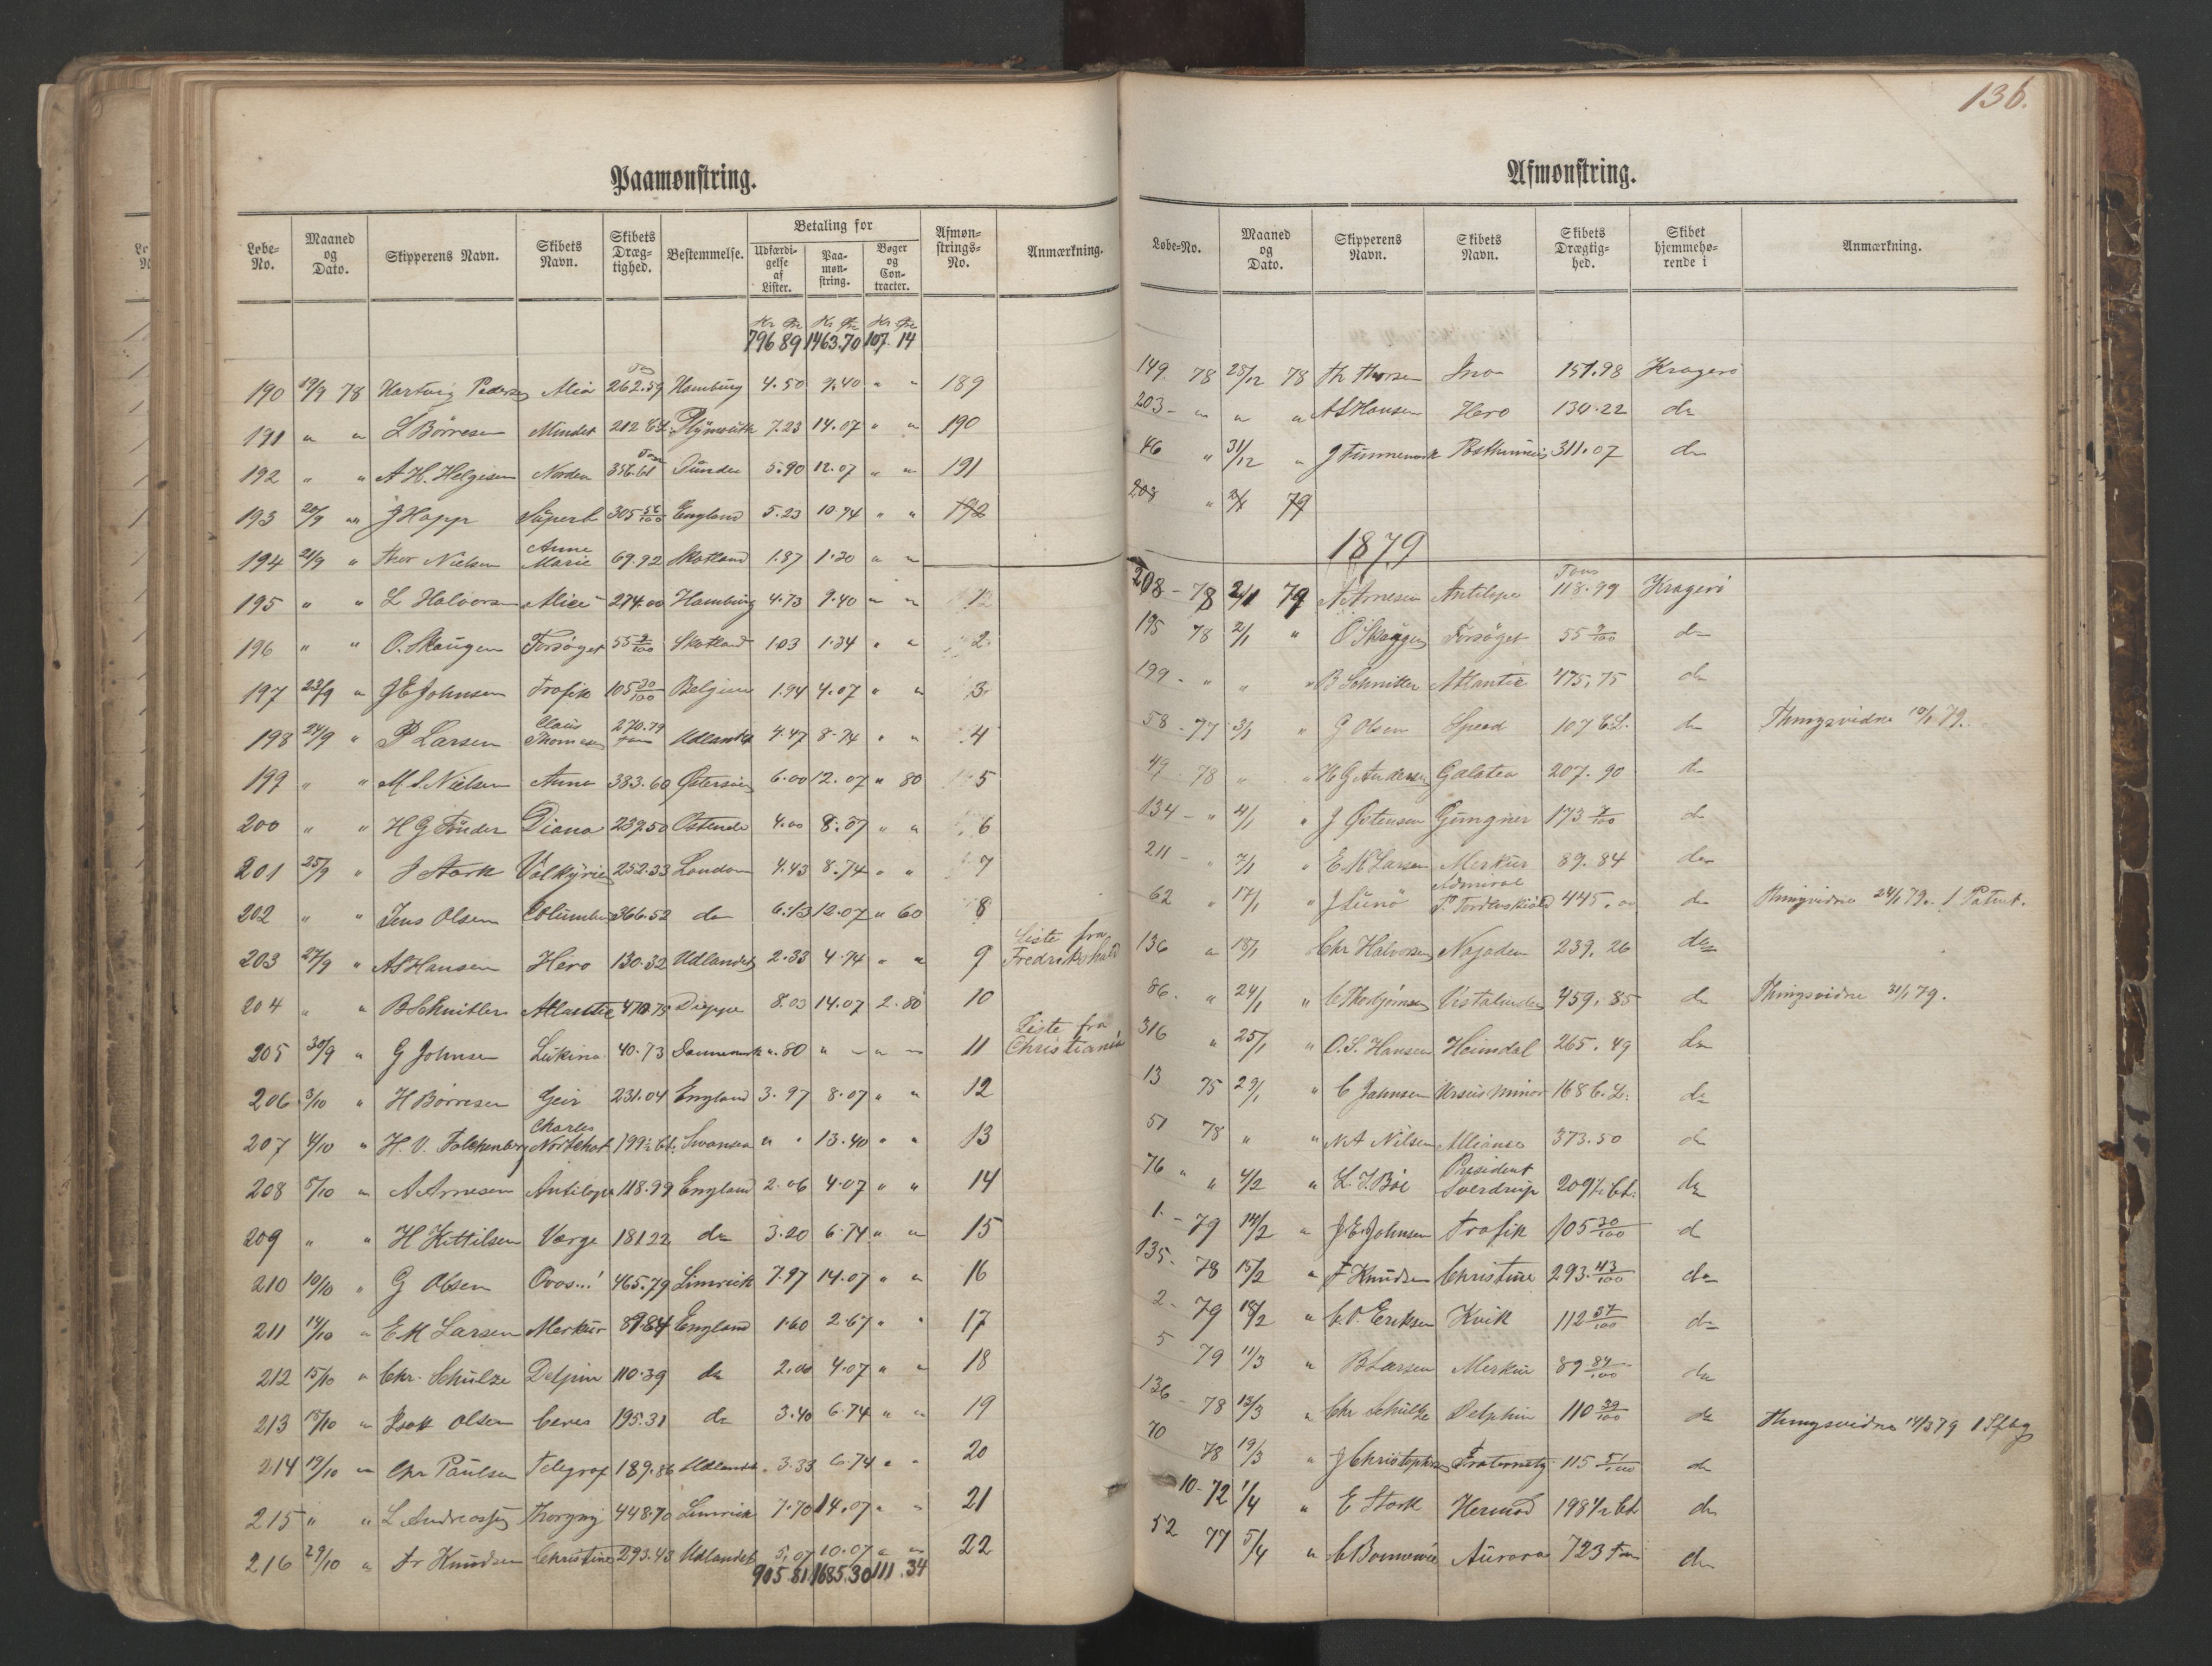 136.
Paamønstring.
Løbe-No. | Maaned og Dato. | Skipperens Navn. | Skibets Navn. | Skibets Dræg-tighed. | Bestemmelse. | Betaling for | Udfærdi-gelse af Lister. | Paa-møn-string. | Bøger og Con-tracter. | Afmøn-strings-No. | Anmærkning.
Kr Øre Kr Øre Kr Øre
796 89 1463.70 107. 14
190 19/9 78 Hartvig Pedersen 262.59 Hamburg 4.50 9.40 " " 189
191 " " L Børresen Mindet 212 CL. Plymouth 7.23 14.07 " " 190
192 " " A H. Helgesen Norden 356.61 Dundee 5.90 12.07 " " 191
193 20/9 " J Happ Superb 305 56/100 England 5.23 10.74 " " 192
194 21/9 " Thor Nielsen Anne Marie 69.92 Skotland 1.87 1.20 " "
195 " " L Halvorsen Alice 274.00 Hamburg 4.73 9.40 " " 1
196 " " O. Skougen Forsøget 55 9/100 Skotland 1.03 1.34 " " 2
197 23/9 " J E Johnsen Trafik 105 30/100 Belgien 1.94 4.07 " " 3
198 24/9 " P Larsen Claus Thomesen 270.79 Tons Udlandet 4.47 8.74 " " 4
199 " " M. S. Nielsen Anna 383.60 Østersøen 6.00 12.07 " 80 5
200 " " H G Tønder Diana 239.50 Ostende 4.00 8.07 " " 6
201 25/9 " J Stork Valkyrien 252.33 London 4.43 8.74 " " 7
202 " " Jens Olsen Columbus 366.52 do 6.13 12.07 " 60 8
203 27/9 " A S Hansen Hero 130.32 Udlandet 2.33 4.74 " " 9 Liste fra Fredrikshald
204 " " B Schnitler Atlantic 475.75 Dieppe 8.03 14.07 2.80 10
205 30/9 " G Johnsen 40.73 Danmark ".80 " " " " 11 Liste fra Christiania
206 3/10 " H Børresen Geir 231.04 England 3.97 8.07 " " 12
207 4/10 " H. V. Falckenberg Charles 199½ CL. Swansea " " 13.40 " " 13
208 5/10 " A Arnesen Antilope 118.99 England 2.06 4.07 " " 14
209 " " H Kittilsen Varge 181 22 do 3.20 6.74 " " 15
210 10/10 " G Olsen 465.79 Limrick 7.97 14.07 " " 16
211 14/10 " E M Larsen Merkur 89.84 England 1.60 2.67 " " 17
212 15/10 " Chr. Schulze Delfin 110.39 do 2.00 4.07 " " 18
213 15/10 " Isak Olsen Ceres 195.31 do 3.40 6.74 " " 19
214 19/10 " Chr Paulsen Telegraf 189.86 Udlandet 3.33 6.74 " " 20
215 " " L Andreassen Thorgny 448.70 Limrick 7.70 14.07 " " 21
216 29/10 " Fr Knudsen Christine 293.43 Udlandet 5.07 10.07 " " 22
905.81 1685.30 111.34
Afmønstring.
Løbe-No. | Maaned og Dato. | Skipperens Navn. | Skibets Navn. | Skibets Drægtig-hed. | Skibet hjemmehø-rende i | Anmærkning.
149. 78 25/12 78 Th Thorsen Ino 151.98 Kragerö
203 - " " " A S Hansen Hero 130.22 do
46 " 31/12 " J Finnemark Posthumius 311.07 do
208 " 2/1 79
1879
208 - 78 2/1 79 A Arnesen Antilope Tons 118.99 Kragerö
195 78 2/1 " O Skougen Forsøget 55 9/100 do
199 - " " " B Schnitler Atlantic 475.75 do
58 - 77 3/1 " G Olsen Speed 107 C.L. do Thingsvidne 10/1 79.
49 - 78 " " H G Andersen Galatea 207.90 do
134 - " 4/1 " J Østensen Gungner 173 do
211 - " 7/1 " E M Larsen Merkur 89.84 do
62 " 17/1 " J Lunö Admiral P. Tordenskiold 445.00 do Thingvidne 24/1 79. 1 Patent.
136 " 18/1 Chr Halvorsen Najaden 239.26 do
86. " 24/1 " C Thorbjørnsen Vistalinden 459.85 do Thingsvidne 31/1 79.
316 " 25/1 " O. S. Hansen Heimdal 265.49 do
13 75 29/1 " C Johnsen Ursus minor 168 C.L. do
51 78 " " N A Nilsen Alliance 373.50 do
76 " " 4/2 " L. J. Bøe President Sverdrup 209½ CL. do
1. - 79 14/2 " J E Johnsen Trafik 105 30/100 do
135 - 78 15/2 " F Knudsen Christine 293.43/100 do
2 - 79 18/2 " C. O. Eriksen Kvik 112 37/100 do
5 79 11/3 " B Larsen Merkur 89 84/100 do
136 - 78 13/3 " Chr Schultze Delphin 110 39/100 do Thingsvidne 14/3 79
70 78 19/3 " J Christophersen Fraternity 115 51/100 do
10 - 72 1/4 " E Stork Hermod 198½ CL do
52 77 5/4 " C Bonnevie Aurora 723 Tons do